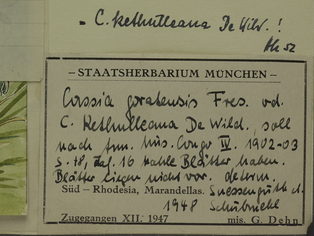 - C. Kethulleana De Wild. !
– STAATSHERBARIUM MÜNCHEN –
Cassia goratensis Fres. od.
C. Kethulleana De Wild., soll
nach Ann. Mus. Congo IV. 1902-03
S. 18, Taf. 16 kahle Blätter haben.
Blätter liegen nicht vor. determ.
Süd – Rhodesia, Marandellas. Suessenguth d.
1948
Zugegangen XII. 1947 mis. G. Dehn